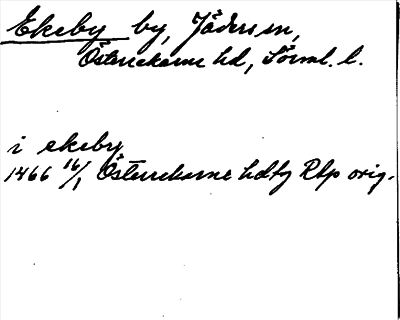 Ekeby by, Jäders sn,
Österrekarne hd, Sörml. l.
i ekeby
1466 16/1 Österrekarne hdtg Rap orig.